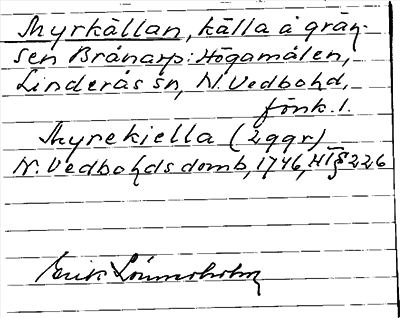 Myrkällan, källa å grän-
sen Brånarp: Högamålen,
Linderås sn, N. Vedbo hd,
fönk. l.
Myrekiella (2 ggr)
N. Vedbo hds domb, 1746, HT § 226
Erik Lönnerholm